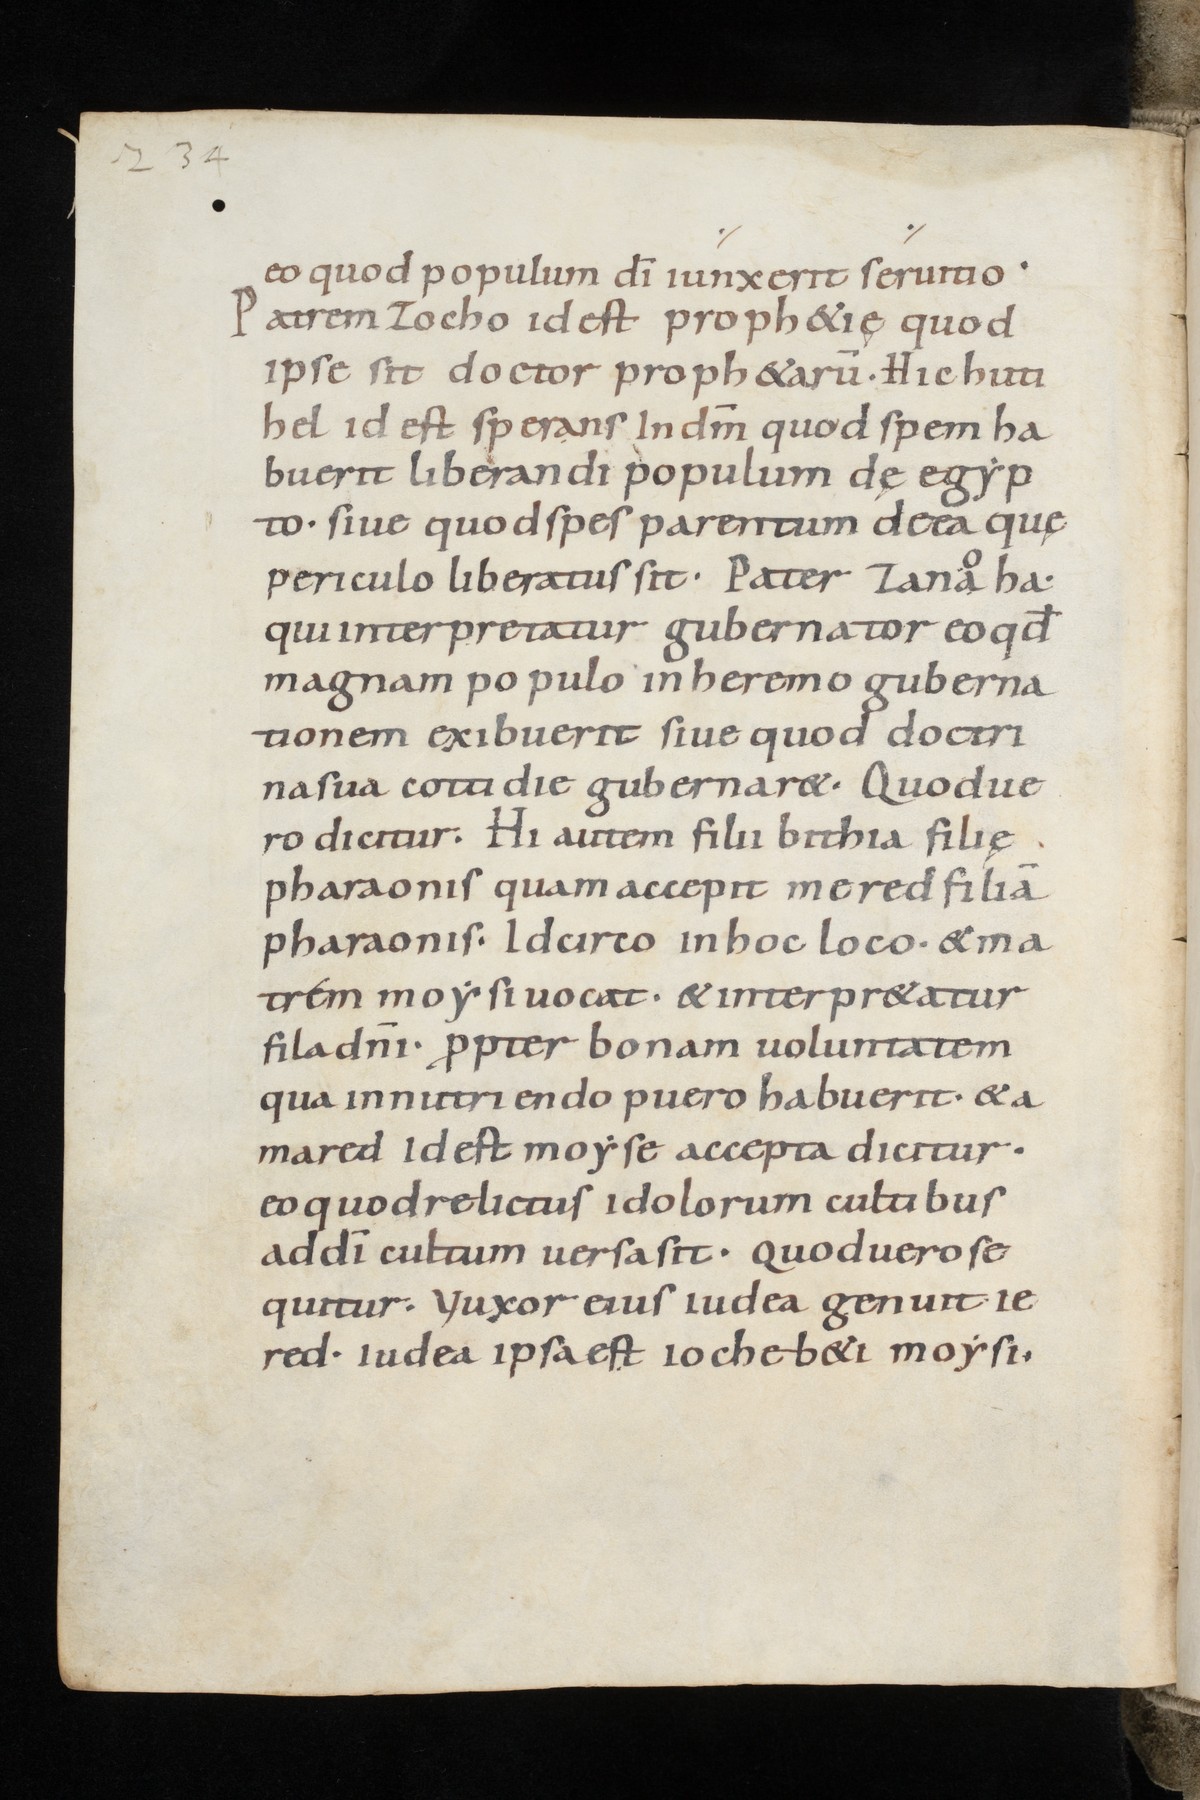 234
eo quod populum dī iunxerit seruitio ·
Patrem Zocho id est proph&ię quod
ipse sit doctor proph&arū · Hic huti
hel id est sperans In dm̄ quod spem ha
buerit liberandi populum dę egẏp
to · siue quod spes parentum de ea quę
periculo liberatus sit · Pater Zanaͦ ha ·
qui interpretatur gubernator eo qđ
magnam populo in heremo guberna
tionem exibuerit siue quod doctri
na sua cottidie gubernar& · Quod ue
ro dicitur · Hi autem filii bithia filię
pharaonis quam accepit mered filiā
pharaonis · Idcirco in hoc loco · & ma
trém moẏsi uocat · & interpr&atur
fila dn̄i · ꝓpter bonam uoluntatem
qua in nutriendo puero habuerit · & a
mared Id est moẏse accepta dicitur ·
eo quod relictus idolorum cultibus
ad dī cultum uersa sit · Quod uero se
quitur · Yuxor eius iudea genuit ie
red · iudea ipsa est iocheb&i moẏsi ·